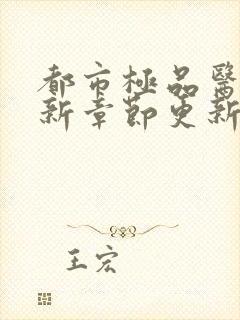 都市極品醫
新章節更新
王宏